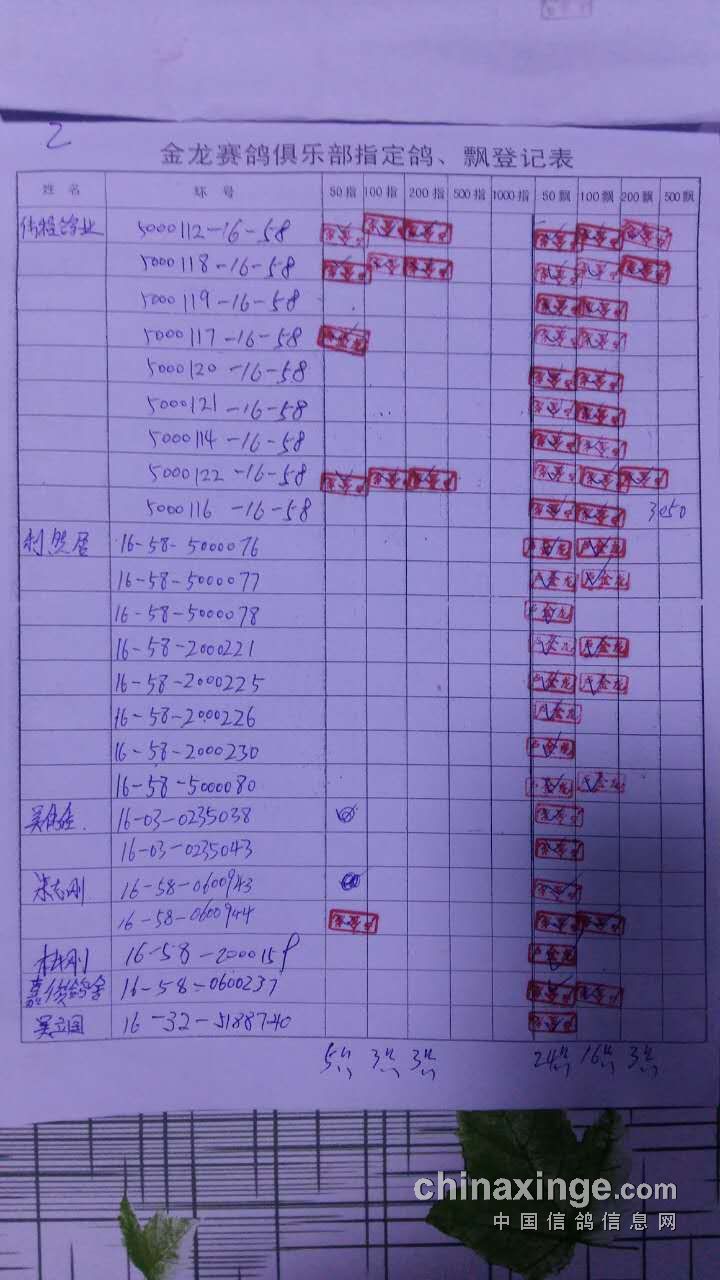 2
金龙赛鸽俱乐部指定鸽、飘登记表
姓名 环号 50指 100指 200指 500指 1000指 50飘 100飘 200飘 500飘
鸽业 5000112-16-58
5000118-16-58
5000119-16-58
5000117-16-58
5000120-16-58
5000121-16-58
5000114-16-58
5000122-16-58
5000116-16-58 3050
16-58-5000076
16-58-5000077
16-58-5000078
16-58-2000221
16-58-2000225
16-58-2000226
16-58-2000230
16-58-5000080
16-03-0235038
16-03-0235043
志刚 16-58-0600943
16-58-0600944
杜刚 16-58-2000159
鸽舍 16-58-0600237
吴立国 16-32-5188740
5 3 3 24 16 3
chinaxinge.com
中国信鸽信息网